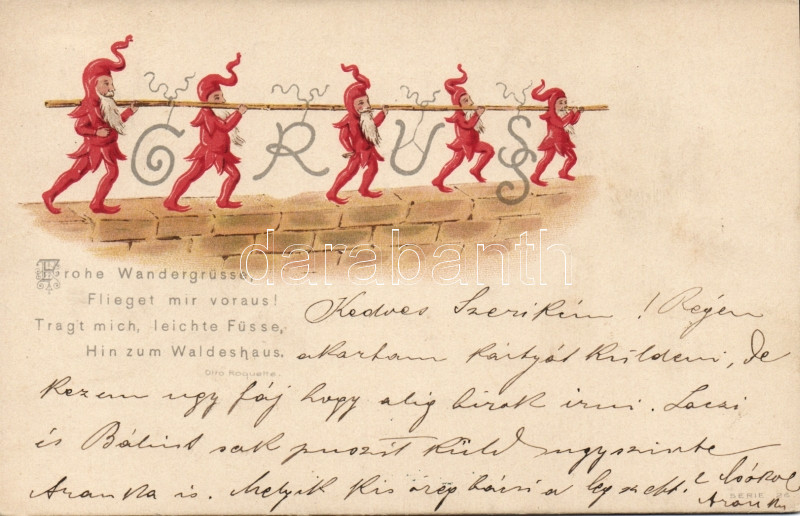 GRUSS
darabanth
Frohe Wandergrüsse,
Flieget mir voraus!
Tragt mich, leichte Füsse,
Hin zum Waldeshaus.
Otto Roquette.
Kedves Szerikém! Régen
akartam kártyát küldeni, de
kezem ugy fáj hogy alig birok irni. Laczi
és Bálint sok puszit küld ugyszinte
Aranka is. Melyik kis öreg bácsi a legszebb?
Aranka
SERIE 26